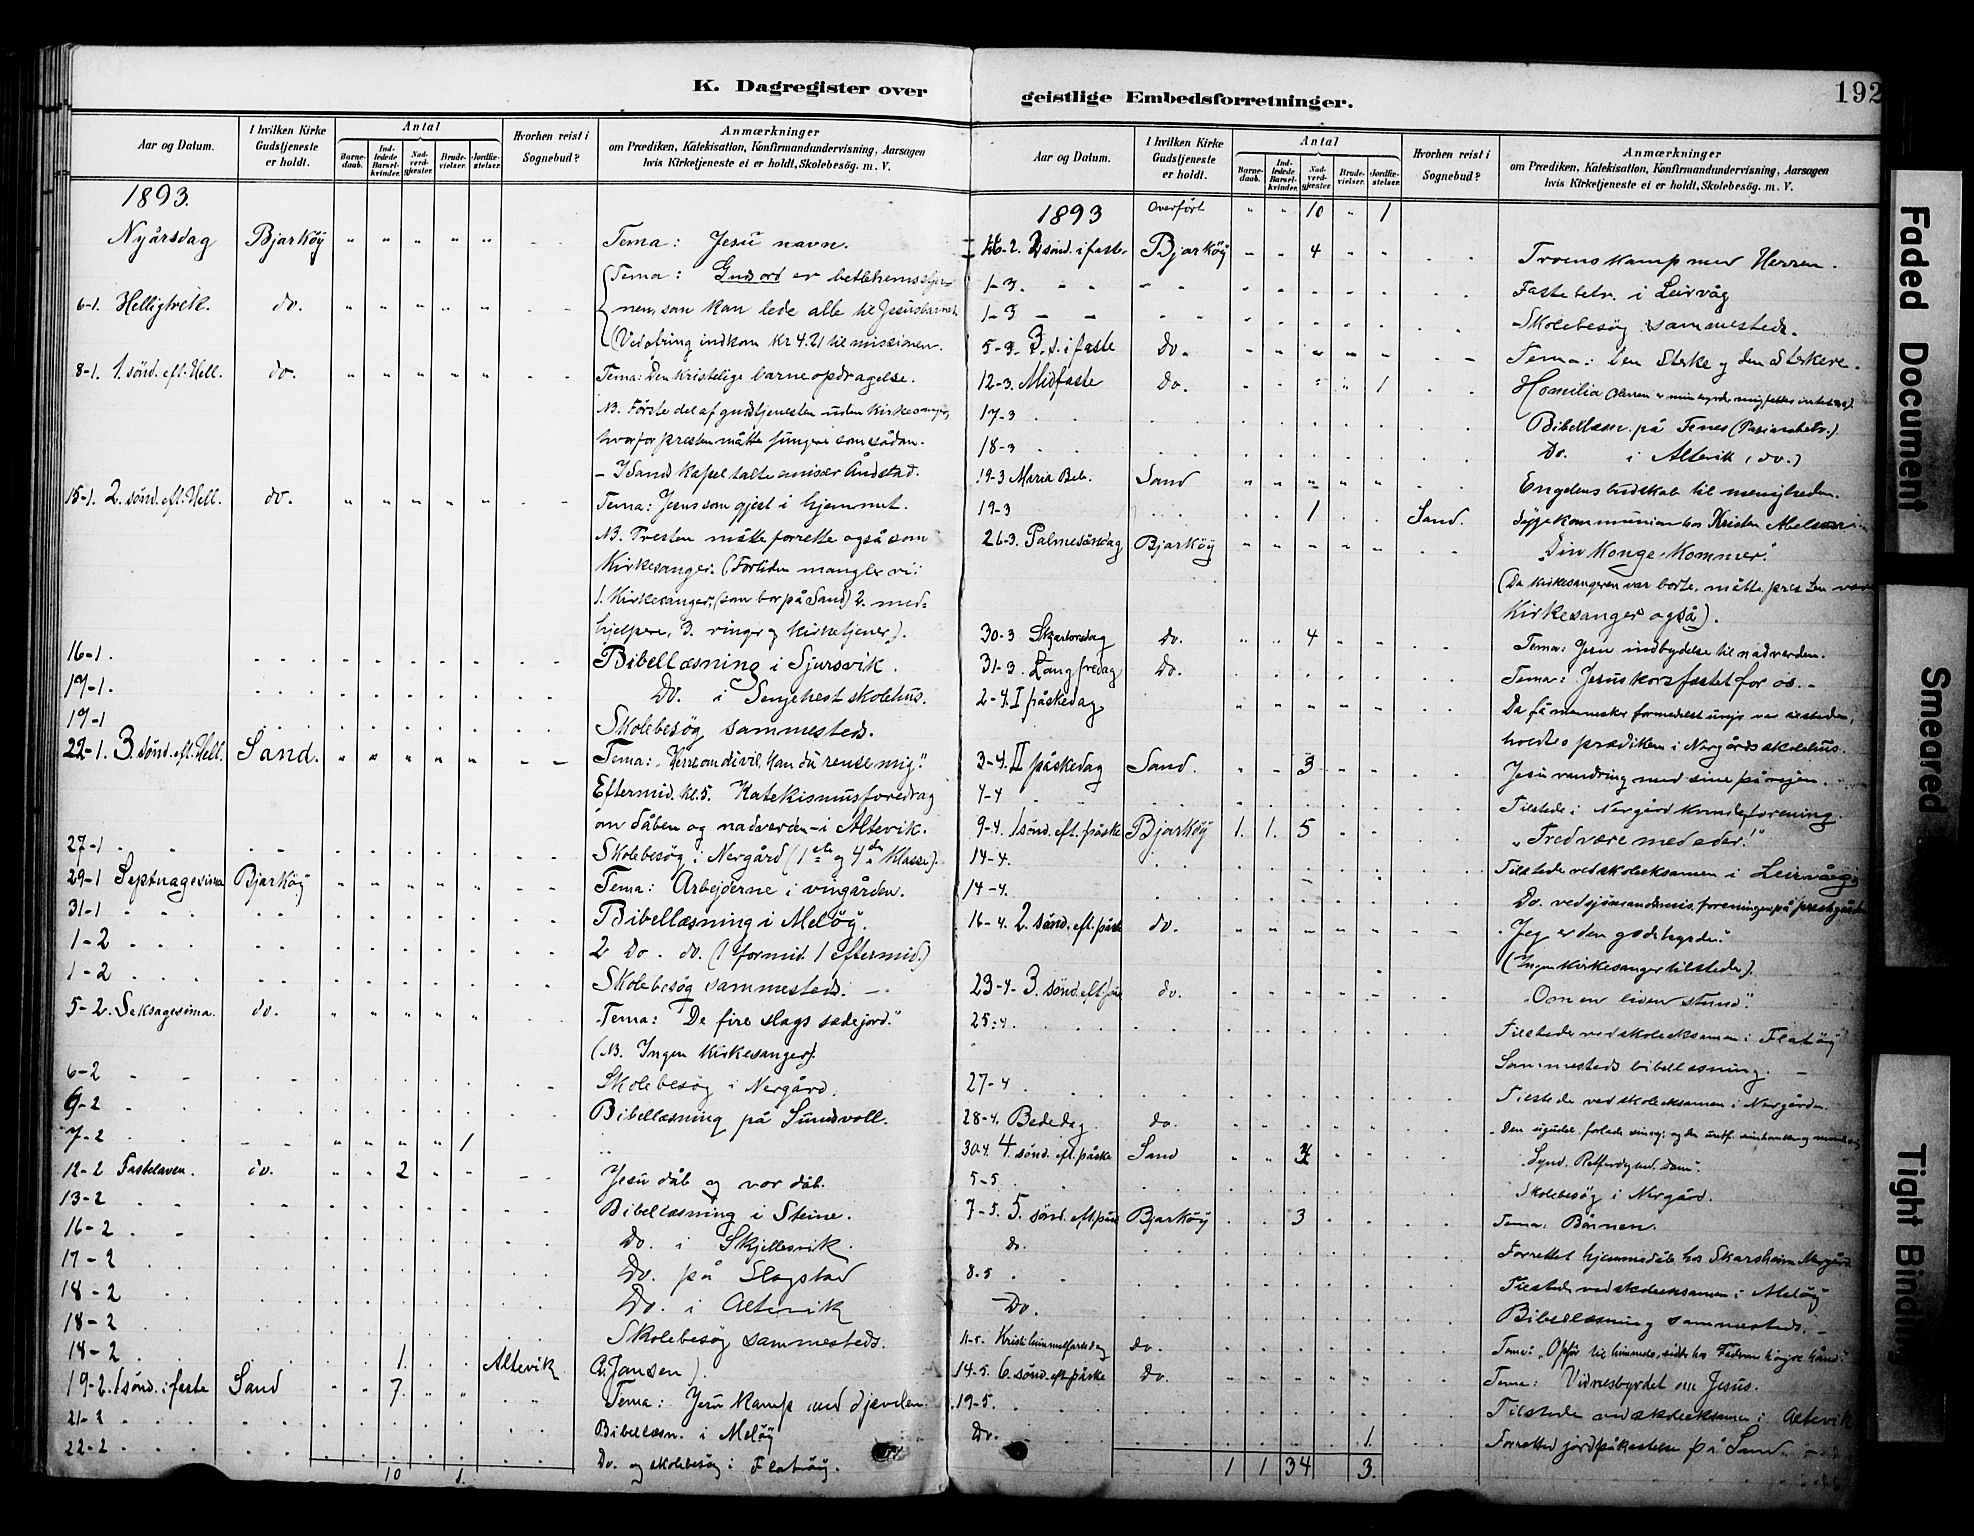 K. Dagregister over
Aar og Datum.
I hvilken Kirke Gudstjeneste er holdt.
Antal
Barnedaab.
Indledede Barselkvinder.
Nadverdgjester.
Brudevielser.
Jordfæstelser.
Hvorhen reist i Sognebud?
Anmærkninger
om Prædiken, Katekisation, Konfirmandundervisning, Aarsagen
hvis Kirketjeneste ei er holdt, Skolebesøg. m. V.
1893.
Nyårsdag Bjarköy " " " " " Tema: Jesu navn.
Tema: Guds ord er betlehemsstjer-
6-1. Helligtrek. do. " " " " " nen, som kan lede alle til Jesusbarnet.
(Ved ofring indkom kr 4.21 til missionen.
8-1. 1. sönd. eft. Hell. do. " " " " " Tema: Den kristelige barneopdragelse.
NB. Förste del af gudstjenesten uden kirkesanger,
hvorfor presten måtte fungere som sådan.
- I Sand kapel talte emissær Åndstad.
15-1. 2. sönd. eft. Hell. do. " " " " " Tema: Jesus som gjest i hjemmet.
NB. Presten måtte forrette også som
Kirkesanger. (Fortiden mangler vi:
1. Kirkesanger, (som bor på Sand) 2. med-
hjelpere, 3. ringer og Kirketjener).
16-1. Bibellæsning i Sjursvik.
17-1. Do. i Sengehest skolehus.
17-1 Skolebesög sammesteds.
22-1. 3. sönd. eft. Hell. Sand. " " " " " Tema: "Herre om du vil, kan du rense mig."
Eftermid. kl. 5. Katekismusforedrag
om dåben og nadverden i Altevik.
27-1 Skolebesög i Nergård (1ste og 4de klasse).
29-1 Septuagesima Bjarköy " " " " " Tema: Arbejderne i vingården.
31-1 Bibellæsning i Melöy.
1-2 2 Do. do. (1 formid. 1 eftermid.)
1-2 Skolebesög sammesteds. -
5-2. Seksagesima. do. " " " " " Tema: "De fire slags sædejord."
(NB. Ingen Kirkesanger).
6-2 Skolebesög i Nergård.
6-2 Bibellæsning på Sundvoll.
7-2 " " " " 1
12-2 Fastelaven. do. " " 2 " " Jesu dåb og vor dåb.
13-2 Bibellæsning i Steine.
16-2 Do. i Skjellesvik.
17-2 Do. på Slagstad
18-2 Do. i Altevik
18-2 Skolebesög sammesteds.
18-2 1. Altevik Jansen).
19-2. 1 sönd. i faste Sand " " 7. " " Tema: Jesu kamp med djævelen.
21-2 Bibellæsn. i Melöy
22-2 Do. og skolebesög i Flatöy.
10 1.
geistlige Embedsforretninger.
192
Aar og Datum.
I hvilken Kirke Gudstjeneste er holdt.
Antal
Barnedaab.
Indledede Barselkvinder.
Nadverdgjester.
Brudevielser.
Jordfæstelser.
Hvorhen reist i Sognebud?
Anmærkninger
om Prædiken, Katekisation, Konfirmandundervisning, Aarsagen
hvis Kirketjeneste ei er holdt, Skolebesøg. m. V.
1893 Overfört " " 10 " 1
26-2. 2 sönd. i faste Bjarköy " " 4 " " Troens kamp med Herren.
1-3. Fastebetr. i Leirvåg
1-3 Skolebesög sammesteds.
5-3. 3. s. i faste Do. " " " " " Tema: Den Sterke og den Sterkere.
12-3. Midfaste Do. " " " " 1 Homilia (Herren er min hyrde mig fattes intet).
17-3 Bibellæsn. på Fenes (Pasionsbetr.)
18-3 Do. i Altevik (do.)
19-3 Maria Beb. Sand " " " " " Engelens budskab til menigheden.
19-3 1 Sand. Sygekommunion hos Kristen
26-3. Palmesöndag Bjarköy " " " " " "Din Konge kommer."
(Da kirkesangeren var borte, måtte presten være
Kirkesanger også).
30-3 Skjærtorsdag Do. " " 4 " " Tema: Jesu indbydelse til nadverden.
31-3. Langfredag Do. Tema: Jesus korsfæstet for os. -
2-4. I påskedag " " " " " Da få mennesker formedelst uvejr var tilstede,
holdtes prædiken i Nergårds skolehus.
3-4. II påskedag Sand. " " 3 " " Jesu vandring med sine på vejen.
4-4 Tilstede i Nergård kvindeforening.
9-4. 1 sönd. eft. påske Bjarköy 1. 1. 5 " " "Fred være med eder!"
14-4. Tilstede ved skoleeksamen i Leirvåg
14-4. Do. ved sjömandsmis. foreningen på prestgården
16-4. 2. sönd. eft. påske do. " " " " " "Jeg er den gode hyrde."
(Ingen kirkesanger tilstede).
23-4. 3. sönd. eft. påske do. " " " " " "Om en liden stund."
25-4. Tilstede ved skoleeksamen i Flatöy
Sammesteds bibellæsning. -
27-4. Tilstede ved skoleeksamen i Nergården.
28-4. Bededag do.
30-4. 4. sönd. eft. påske Sand " " " " "Synd. Retferdig med. Dom."
5-5. Skolebesög i Nergård.
7-5. 5. sönd. eft. påske Bjarköy 3 Tema: Bönnen.
do. Forrettet hjemmedåb hos Nergård
8-5 Tilstede ved skoleeksamen i Melöy
Do. Bibellæsning sammesteds. -
11-5. Kristi himmelfartsdag do. Tema: til himmels, sidder hos Faderens höjre hånd."
14-5. 6. sönd. eft. påske Do. " " " " " Tema: Vidnesbyrdet om Jesus.
19-5. Tilstede ved skoleeksamen i Altevik
Do. 1. Forrettet jordpåkastelse på Sand
1 1 34 3.
Faded Document
Smeared
Tight Binding